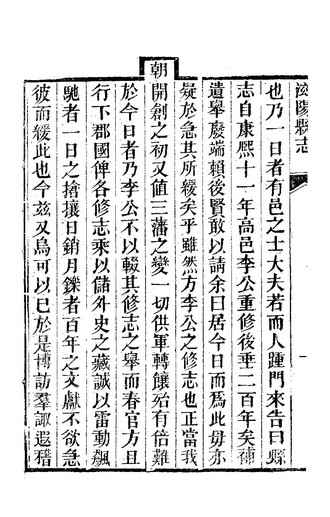 滋陽縣志
也乃一日者有邑之士大夫若而人踵門來告曰縣
志自康熙十一年高邑李公重修後垂二百年矣補
遺舉廢端賴後賢敢以請余曰居今日而為此毋亦
疑於急其所緩矣乎雖然方李公之修志也正當我
朝開創之初又值三藩之變一切供軍轉饟殆有倍難
於今日者乃李公不以輟其修志之舉而春官方且
行下郡國俾各修志乘以儲外史之藏誠以雷動飆
馳者一日之搶攘日銷月鑠者百年之文獻不欲急
彼而緩此也今茲又烏可以已於是博訪羣諏遐稽